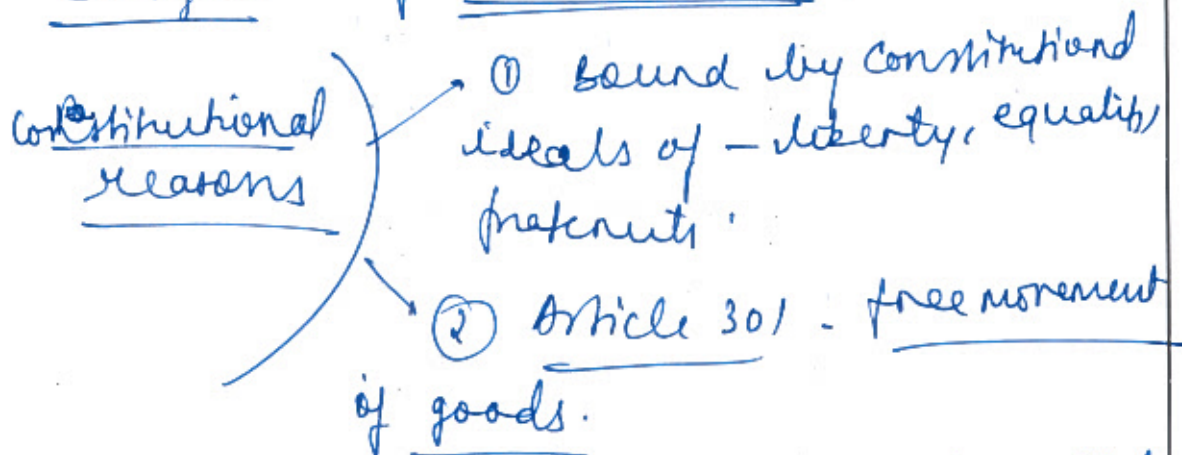 Constitutional
reasons
① Bound by Constitutional
ideals of - liberty, equality,
fraternity.
② Article 301 - free movement
of goods.